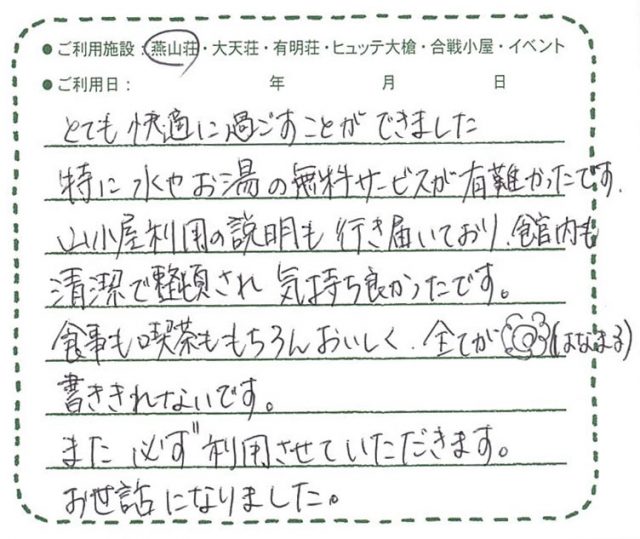 ●ご利用施設：燕山荘・大天荘・有明荘・ヒュッテ大槍・合戦小屋・イベント
●ご利用日： 年 月 日
とても快適に過ごすことができました
特に水やお湯の無料サービスが有難かったです.
山小屋利用の説明も行き届いており、館内も
清潔で整頓され気持ち良かったです。
食事も喫茶ももちろんおいしく、全てが(はなまる)
書ききれないです。
また必ず利用させていただきます。
お世話になりました。